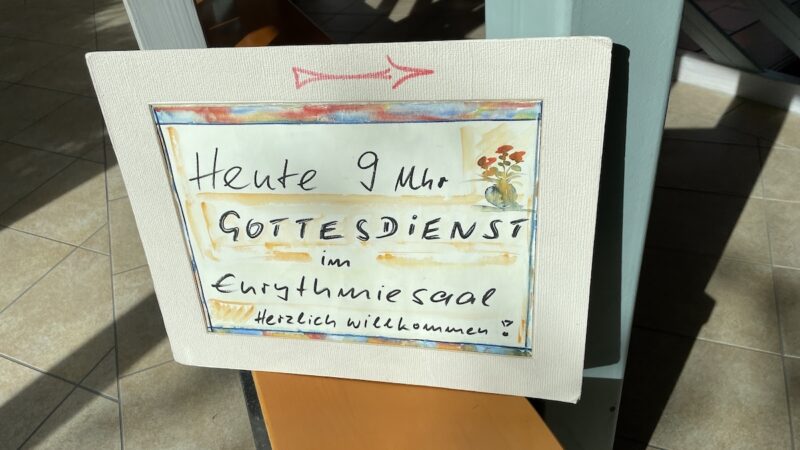 Heute 9 Uhr
GOTTESDiENST
im
Eurythmiesaal
Herzlich willkommen!